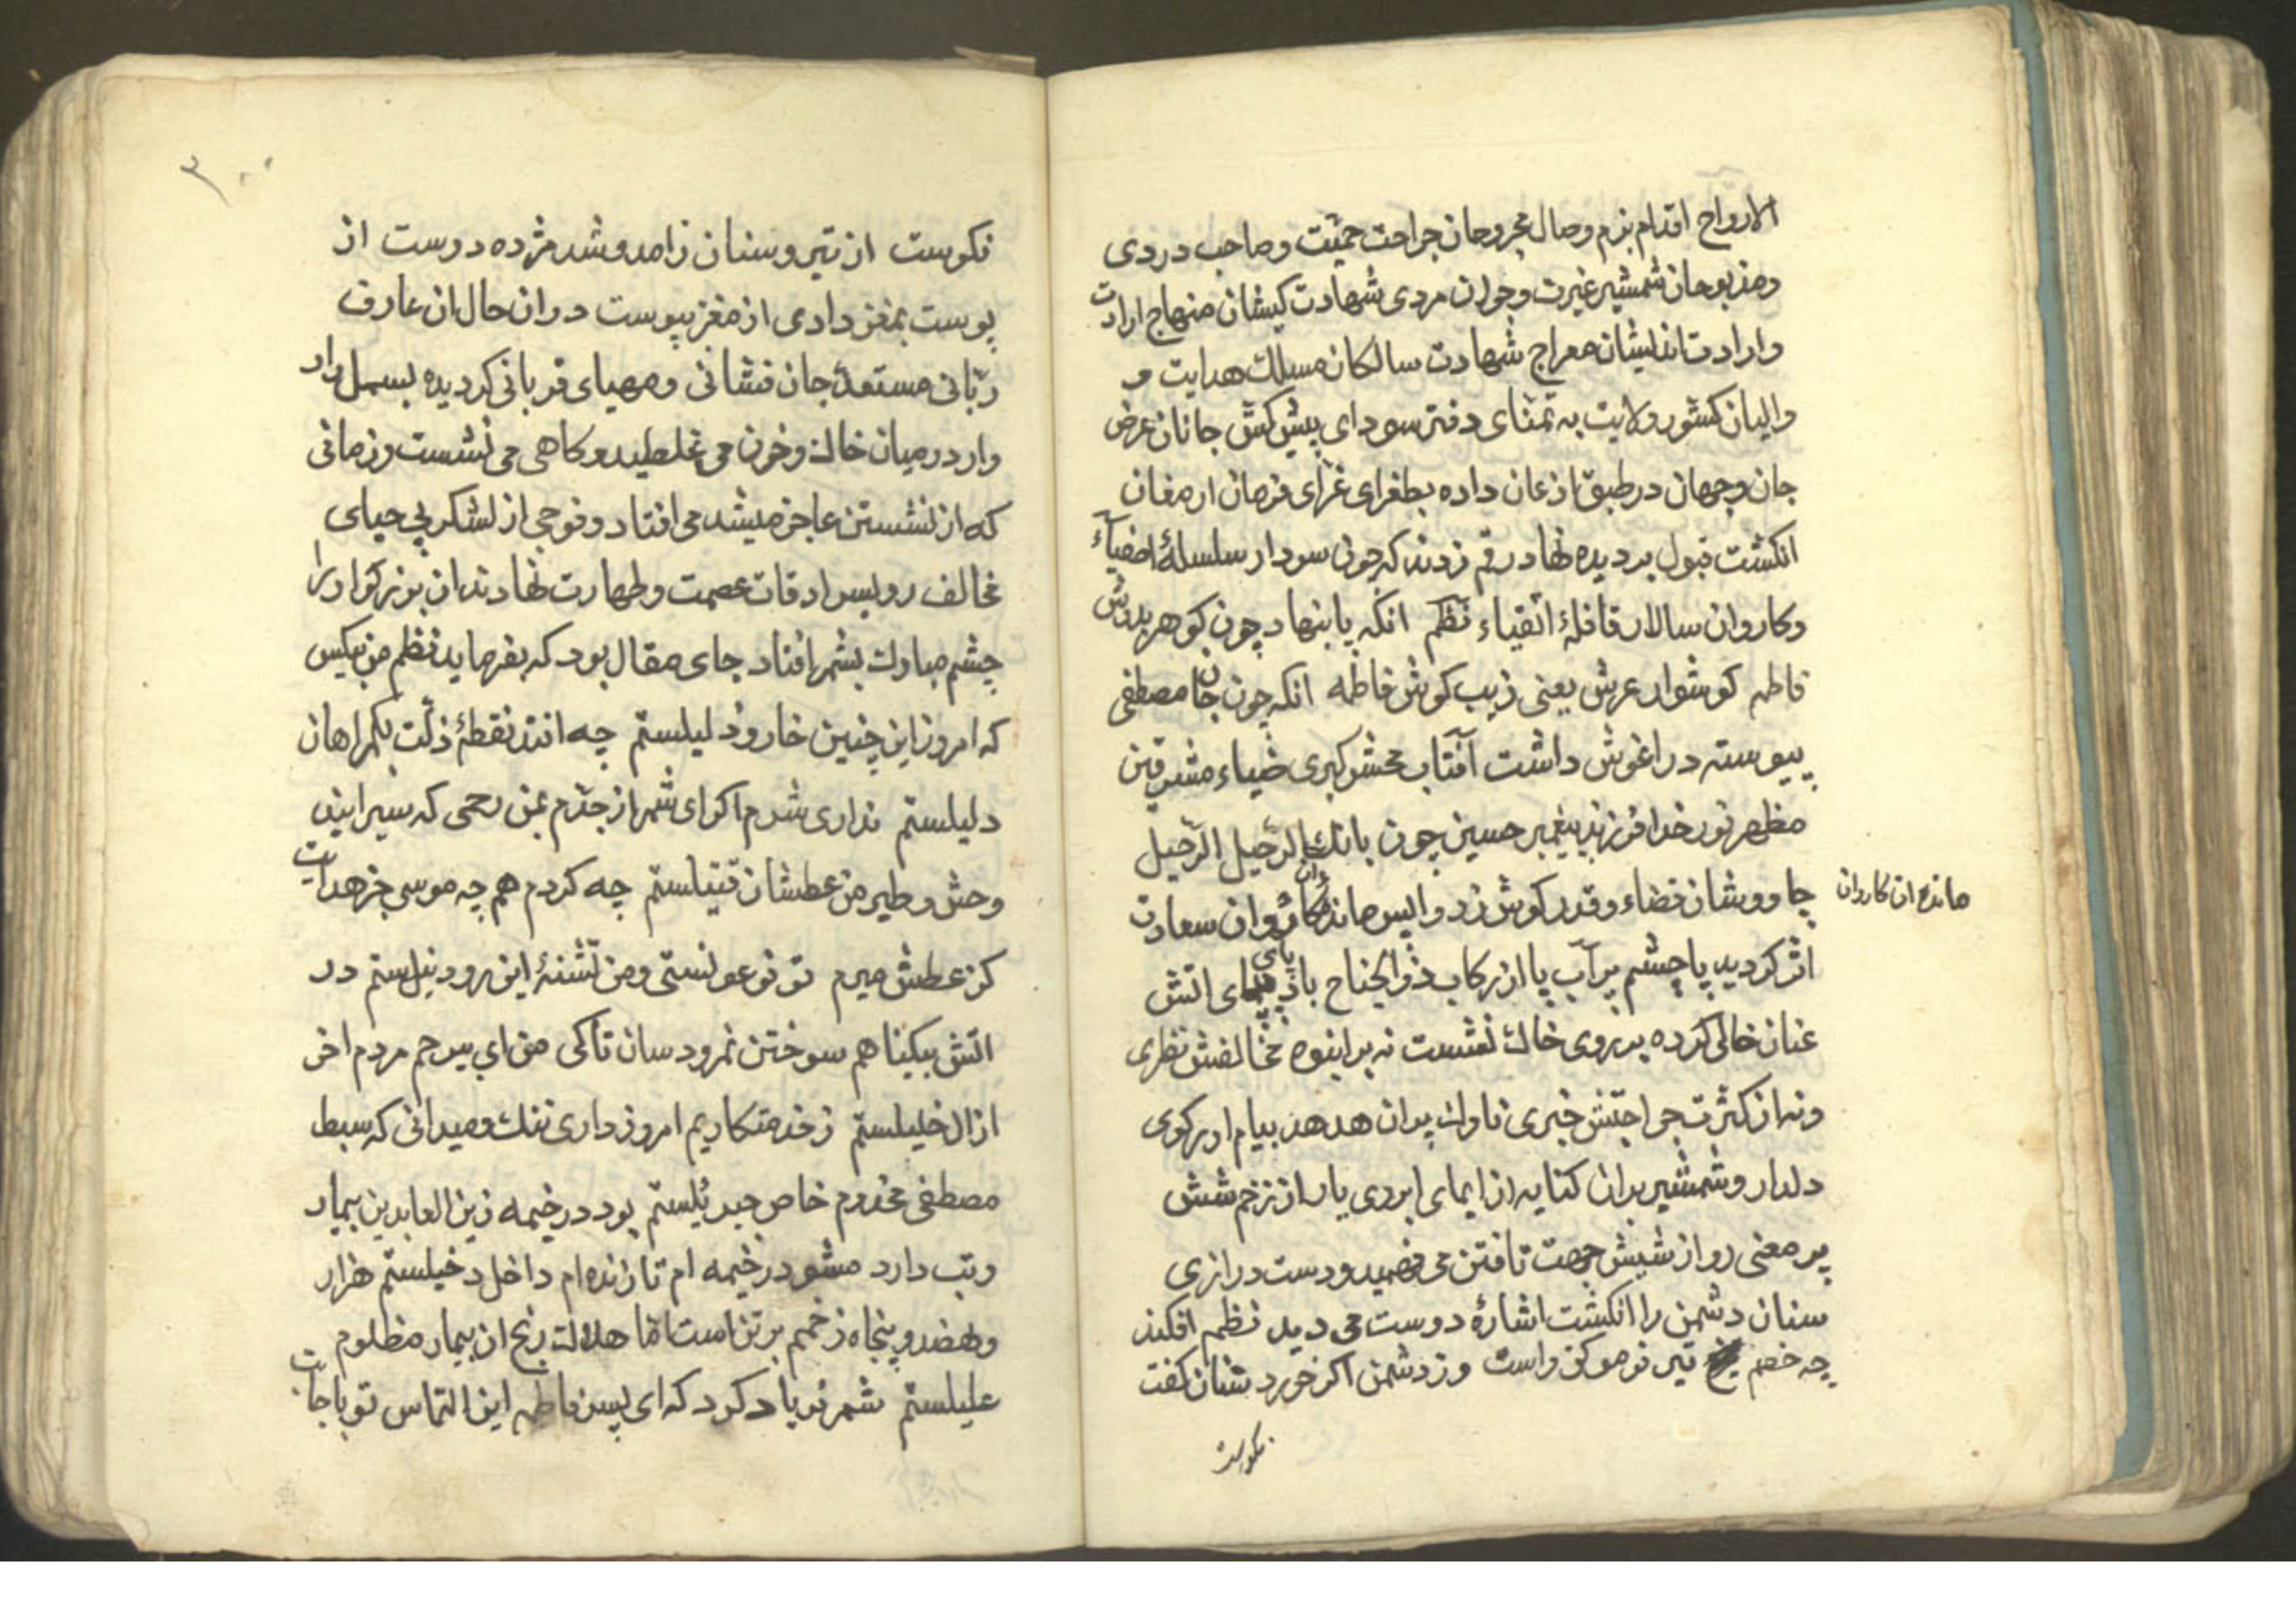 الارواح اقدام بزم وصال مجروحان جراحت حمیّت و صاحب دردی
ومذبوحان شمشیر غیرت و جوان مردی شهادت کیشان منهاج ارادت
وارادت اندیشان معراج شهادت سالکان مسالك هدایت و
والیان کشور ولایت به تمنّای دفتر سودای پیش کش جانان عرض
جان وجهان در طبق اذعان داده بطغرای غرّای فرمان ارمغان
انکشت قبول بر دیده نهاد رقم زدند که چون سردار سلسلۀ اصفیاء
وکاروان سالار قافلۀ اتقیاء نظم انکه پا بنهاد چون کوهر بدوش
فاطمه کوشوار عرش یعنی زیب کوش فاطمه انکه چون جان مصطفی
پیوسته در اغوش داشت آفتاب محشر کبری ضیاء مشرقین
مظهر نور خدا فرزند پیغمبر حسین چون بانك الرّحیل الرّحیل
چاووشان قضاء وقدر کوش زد واپس ماندکان کاروان سعادت
مانده ان کاروان
اثر کردید با چشم پر آب پا از رکاب ذوالجناح باد پای اتش
عنان خالی کرده بر روی خاك نشست نه بر انبوه مخالفش نظری
ونه از کثرت جراحتش خبری ناوك پران هدهد پیام اور کوی
دلدار وشمشیر بران کنایه از ایمای ابروی یار از زخم شش
پر معنی رو از شیش جهت تافتن می فهمید ودست درازی
سنان دشمن را انکشت اشارۀ دوست می دید نظم افکند
چه خصم تیر نو موکفت راست وزد شمن اکر خورد سنان کفت
نکوست
۳۰۰
نکوست از تیر و سنان زامد و شد مژده دوست از
پوست بمغز دادی از مغز بپوست در ان حال ان عارف
ربّانی مستعدّ جان فشانی ومهیای قربانی کردیده بسمل وار
وار در میان خاك وخون می غلطید وکاهی می نشست وزمانی
که از نشستن عاجز میشد می افتاد وفوجی از لشکر بی حیای
مخالف رو بسرادقات عصمت وطهارت نهادند ان بزرکوار را
چشم مبارك بشمر افتاد جای مقال بود که بفرماید نظم من بیکس
که امروز این چنین خار وذلیلستم چه افتد نقطۀ ذلّت بکمراهان
دلیلستم نداری شرم اکر ای شمر از جدّم بمن رحمی که سیرابند
وحش وطیر من عطشان قتیلستم چه کردم هم چه موسی جز هدایت
کز عطش میرم تو فرعونستی ومن تشنۀ این رود نیلستم در
اتش بیکناهم سوختن نمرود سان تاکی من ای بیرحم مردم اخر
از ال خلیلستم ز خدمتکاریم امروز داری ننك ومیدانی که سبط
مصطفی مخدوم خاص جبرئیلستم بود در خیمه زین العابدین بیمار
وتب دارد مشو در خیمه ام تا زنده ام داخل دخیلستم هزار
ونهصد وپنجاه زخمم بر تن است امّا هلاك رنج ان بیمار مظلوم
علیلستم شمر فریاد کرد که ای پسر فاطمه این التماس تو با جابت